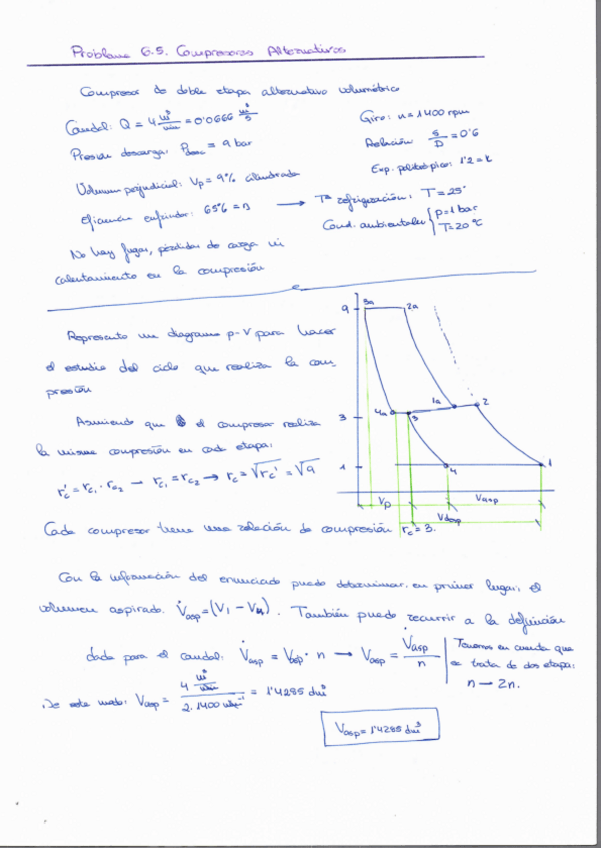 Problema 6.5. Compresores Alternativos
Compresor de doble etapa alternativo volumétrico
Caudal: Q = 4 m³/min = 0'0666 m³/s
Giro: n = 1400 rpm
Presión descarga: Pdesc = 9 bar
Relación S/D = 0'6
Exp. politrópico: 1'2 = k
Volumen perjudicial: Vp = 9% cilindrada
Eficiencia enfriador: 65% = n → Tª refrigeración: T = 25°
Cond. ambientales { p = 1 bar
T = 20 °C
No hay fugas, pérdidas de carga ni
calentamiento en la compresión
Represento un diagrama p-V para hacer
el estudio del ciclo que realiza la com-
presión
Asumiendo que el compresor realiza
la misma compresión en cada etapa:
rc' = rc1 · rc2 → rc1 = rc2 → rc = √rc' = √9
9 3a 2a
3 4a 3 1a 2
1 4 1
Vp Vasp
Vdesp
Cada compresor tiene una relación de compresión rc = 3.
Con la información del enunciado puedo determinar, en primer lugar, el
volumen aspirado. V̇asp = (V1 - V4). También puedo recurrir a la definición
dada para el caudal: V̇asp = Vasp · n → Vasp = V̇asp/n
Tenemos en cuenta que
se trata de dos etapas:
n → 2n.
De este modo: Vasp = 4 m³/min / 2·1400 min⁻¹ = 1'4285 dm³
Vasp = 1'4285 dm³